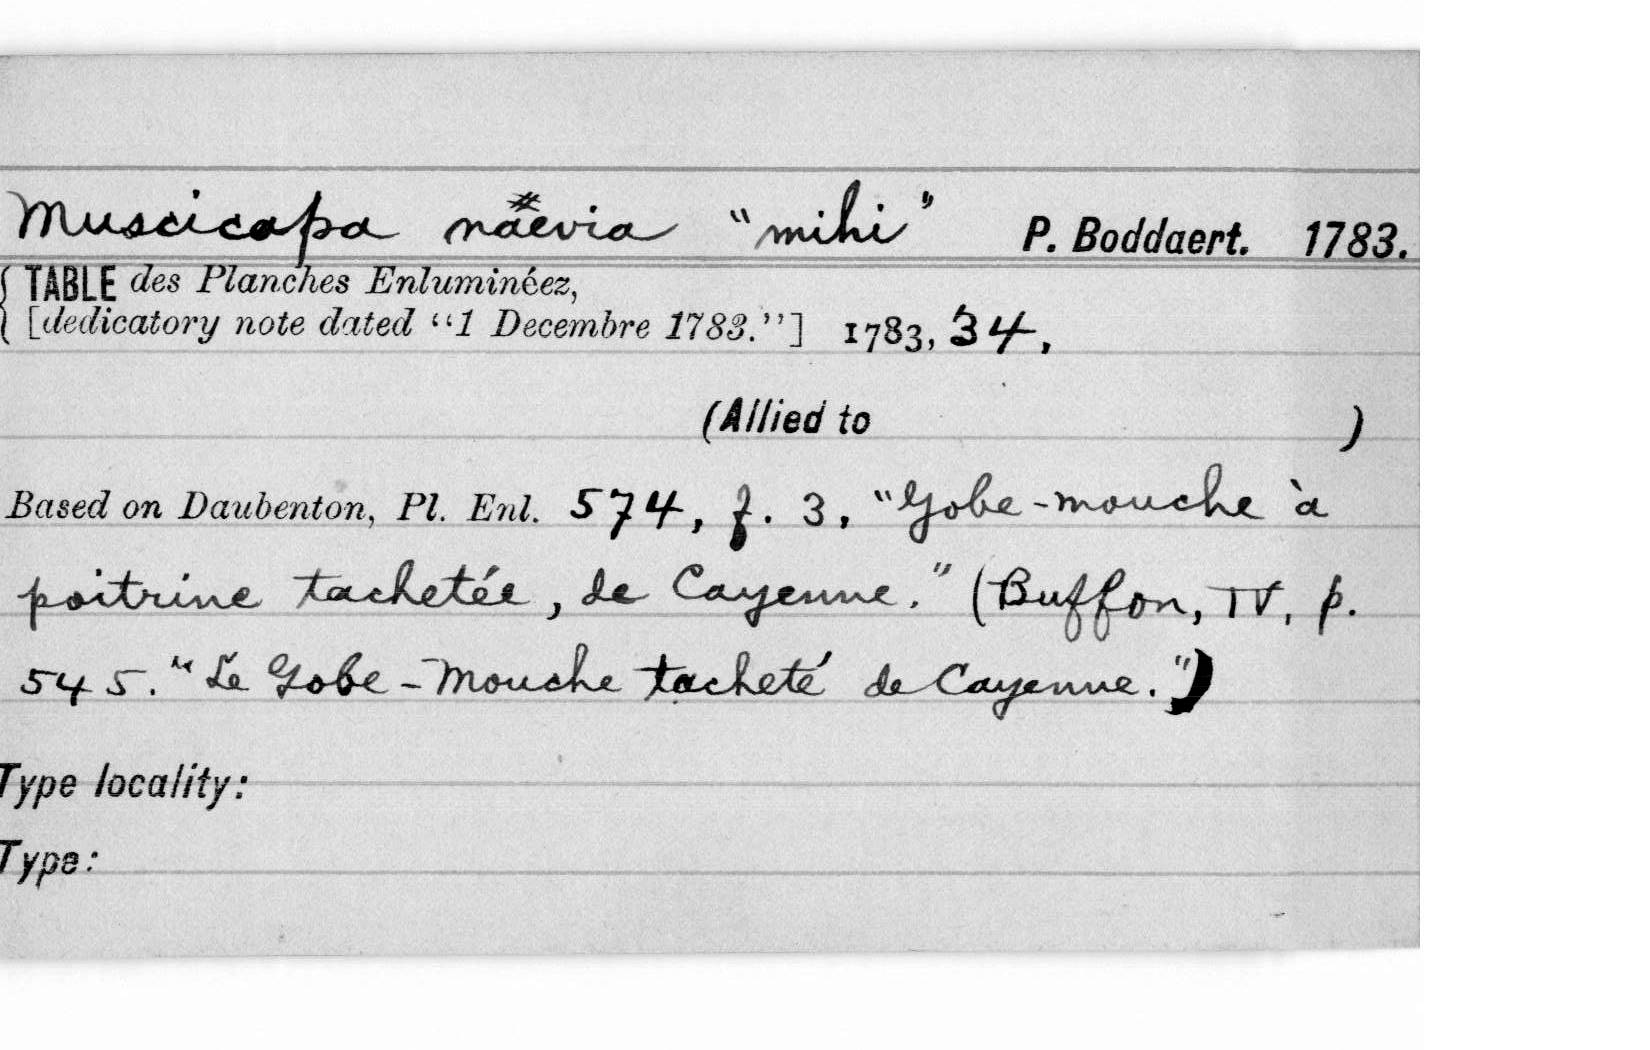 Muscicapa näevia “mihi” P. Boddaert. 1783.
TABLE des Planches Enluminéez,
[dedicatory note dated “1 Decembre 1783.”] 1783, 34,
(Allied to )
Based on Daubenton, Pl. Enl. 574, f. 3, "Gobe-mouche à
poitrine tachetée, de Cayenne." (Buffon, IV, p.
545. "Le Gobe-Mouche tacheté de Cayenne.")
Type locality:
Type: